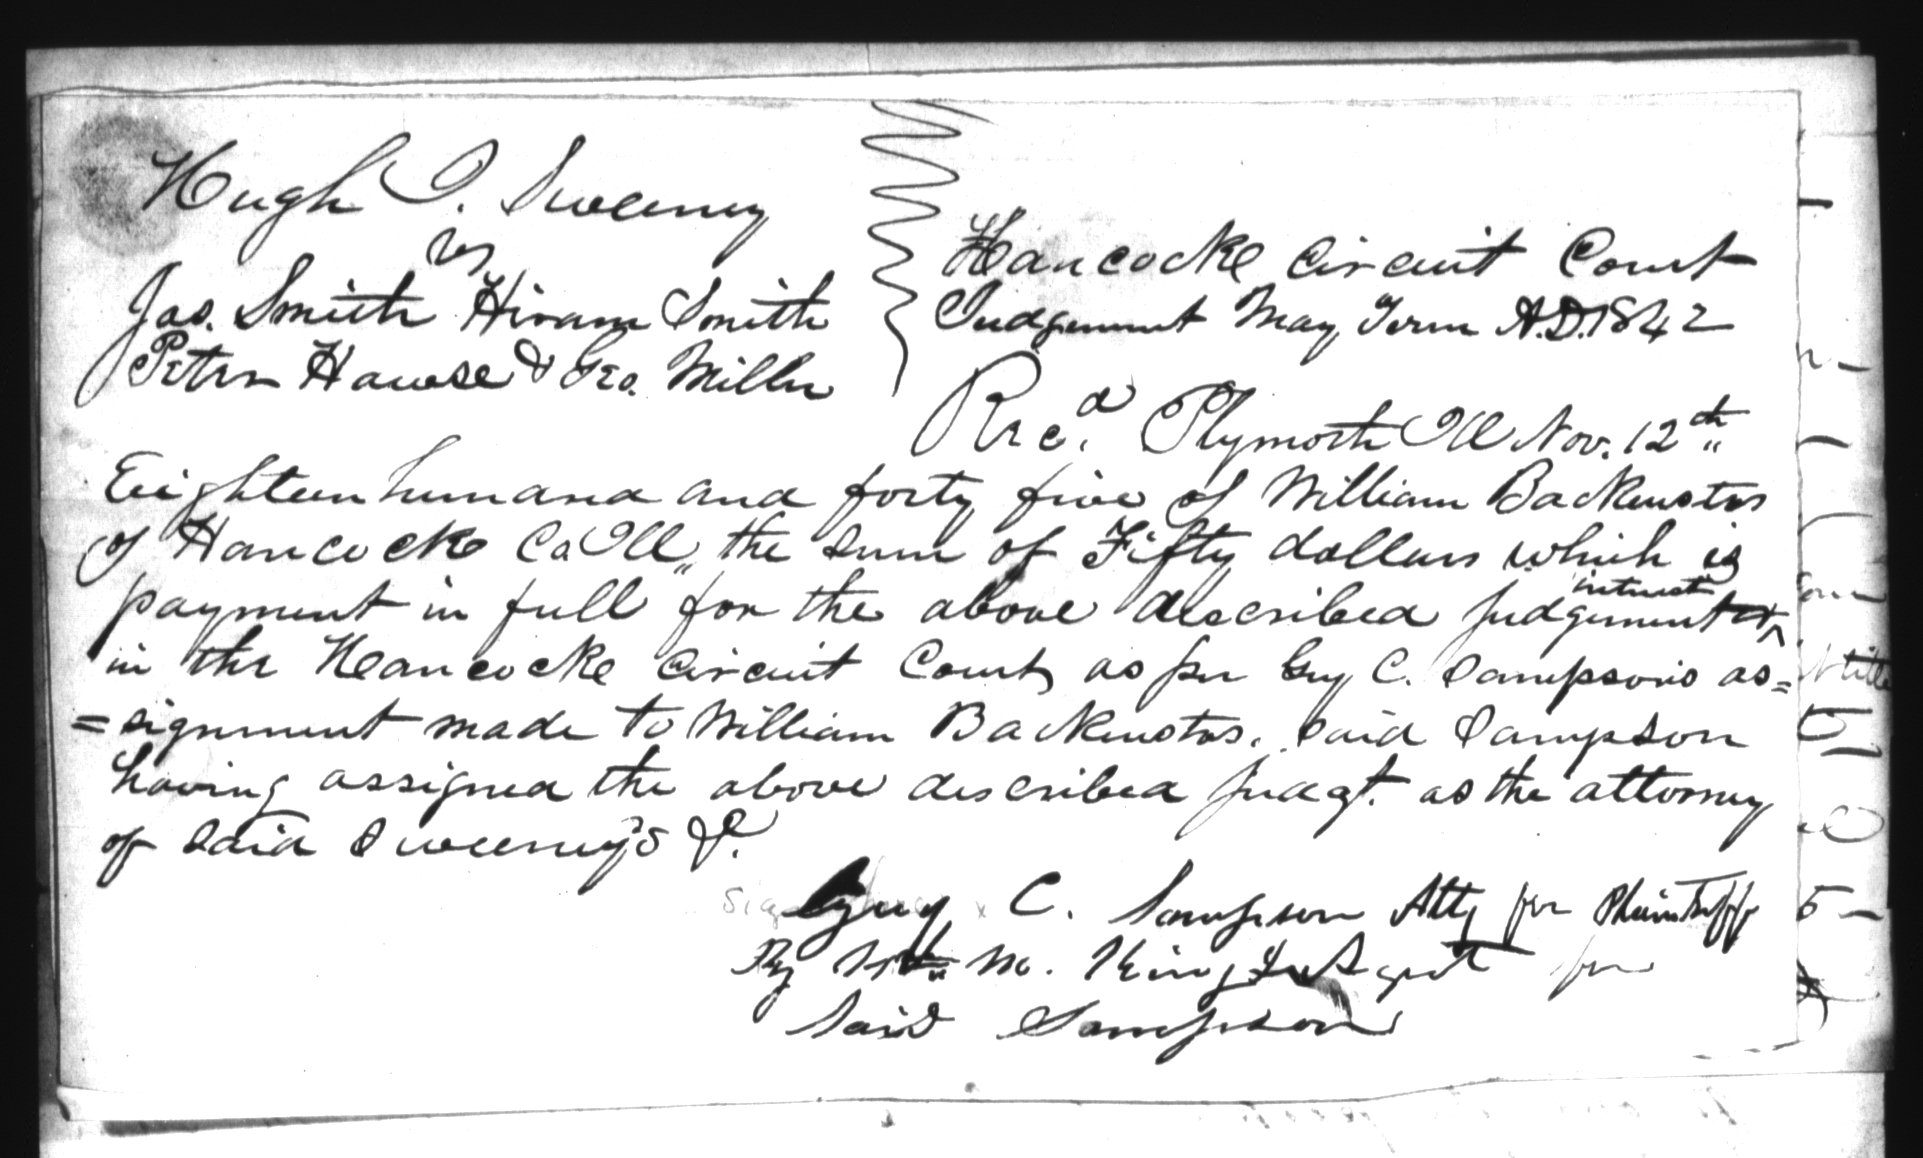 Hugh I. Sweeney
vs
Jas. Smith Hiram Smith
Peter Hawse & Geo. Miller
Hancocke Circuit Court
Judgement May Term A.D. 1842
Rec.d Plymoth Ill Nov. 12th
Eighteen hundred and forty five of William Backenstos
of Hancocke Co Ill, the sum of Fifty dollars which is
payment in full for the above described judgement & interest
in the Hancocke Circuit Court, as per Guy C. Sampson's as=
=signment made to William Backenstos. Said Sampson
having assigned the above described judgt. as the attorney
of said Sweeney's &c.
Guy C. Sampson Atty for Plaintiff
By M. King Agent for
Said Sampson